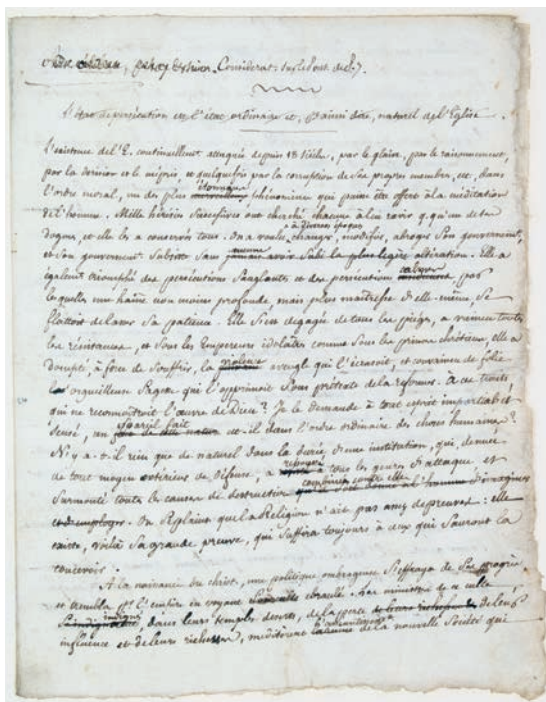 Considérat. sur le Pont. de P. 7.
L'état de persécution est l'état ordinaire et, p. ainsi dire, naturel de l'Eglise.
L'existence de l'E. continuellemt. attaquée depuis 18 siècles, par le glaive, par le raisonnement,
par la dérision et le mépris, et quelquefois par la corruption de ses propres membres, est, dans
étonnans
l'ordre moral, un des plus phénomènes qui puisse être offert à la méditation
de l'homme. Mille hérésies successives ont cherché chacune à lui ravir q.q'un de ses
à diverses époques
dogmes, et elle les a conservés tous. On a voulu changer, modifier, abroger son gouvernement,
et son gouvernement subsiste sans jamais avoir subi la plus légère altération. Elle a
également triomphé des persécutions sanglantes et des persécutions par
lesquelles une haine non moins profonde, mais plus maîtresse d'elle-même, se
flattoit de lasser sa patience. Elle s'est dégagée de tous les pièges, a vaincu toutes
les résistances, et sous les Empereurs idolâtres comme sous les princes chrétiens, elle a
violence
dompté, à force de souffrir, la aveugle qui l'écrasoit, et convaincu de folie
orgueilleuse sagesse qui l'opprimoit sous prétexte de la réformer. A ces traits,
qui ne reconnoîtroit l'œuvre de Dieu ? Je le demande à tout esprit impartial et
pareil fait
sensé, un est-il dans l'ordre ordinaire des choses humaines ?
N'y a-t-il rien que de naturel dans la durée d'une institution, qui, dénuée
repoussé
de tout moyen extérieur de défense, a tous les genres d'attaque et
combinées contre elle
surmonté toutes les causes de destruction qu'il soit donné à l'homme d'imaginer
et d'employer. On se plaint que la Religion n'ait pas assez de preuves : elle
existe, voilà sa grande preuve, qui suffira toujours à ceux qui sauront la
concevoir.
A la naissance du christ, une politique ombrageuse s'effraya de ses progrès,
et trembla pr. l'empire en voyant ébranlé. Les ministres de ce culte,
indignés
dans leurs temples déserts, de la perte de leur
influence et de leurs richesses, méditèrent de la nouvelle Société qui